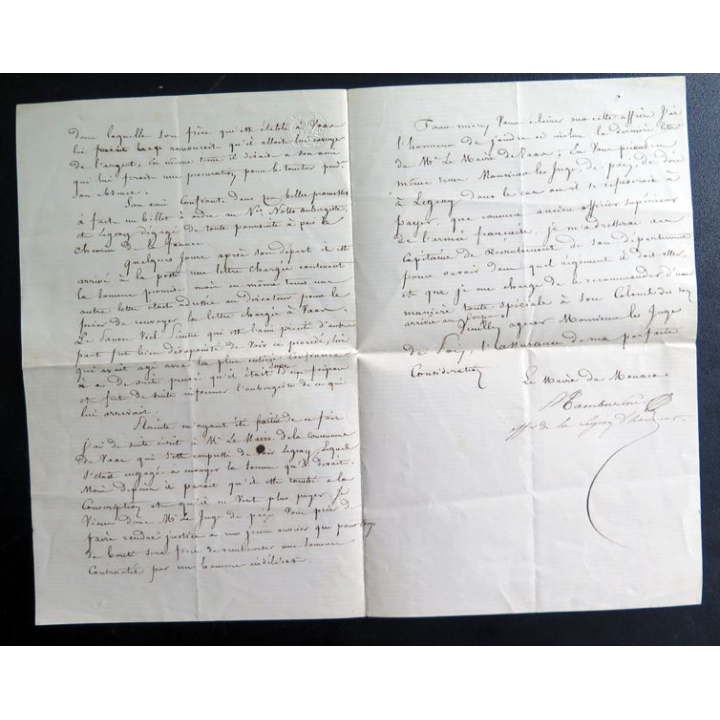 dans laquelle son frère qui est établi à Vaas
lui annoncait qu'il allait lui envoyer
de l'argent, en même tems il disait a son ami
qui lui ferait une procuration pour le toucher pendt
son absence.
Son ami confiant dans ces belles promesses
a fait un billet à ordre au Nr. Notto aubergiste
et Legeay dégagé de toute poursuite à pris le
chemin de la France.
Quelques jours après son départ il est
arrivé à la poste une lettre chargée contenant
la somme promise mais en même tems une
autre lettre était adressée au directeur pour le
prier de renvoyer la lettre chargée à Vaas.
Le Savon qui est l'ami précité d'autre
part fut bien désapointé de voir ce procédé, lui
qui avait agi avec la plus entière confiance
il a de suite pensé qu'il était dupé
et fut de suite informer l'aubergiste de ce qui
lui arrivait.
Plainte m'ayant été portée de ce fait
j'ai de suite écrit à Mr Le Maire de la commune
de Vaas qui s'est empressé de voir Legeay, lequel
s'était engagé a envoyer la somme qu'il devait.
Mais depuis il parait qu'il est tombé a la
Conscription et qu'il ne veut plus payer. Je
viens donc Mr le Juge de paix vous prier de
faire rendre justice a un jeune ouvrier que
de bonté sera forcé de rembourser une somme
contractée par un homme indélicat.
Pour mieux vous éclairer sur cette affaire j'ai
l'honneur de joindre ci inclus la dernière lettre
de Mr Le Maire de Vaas. Je vous prierai en
même tems Monsieur le Juge de paix de dire
à Legeay dans le cas ou il se refuserait à
payer, que comme ancien officier supérieur
de l'armée française, je m'adresserai au
Capitaine de Recrutement de son département
pour savoir dans quel régiment il doit aller
et que je me charge de le recommander d'une
manière toute spéciale à son Colonel
arrivé au corps.
Veuillez agréer Monsieur le Juge
de Paix, l'assurance de ma parfaite
Considération
Le Maire de Monaco
offer de la Légion d'honneur.